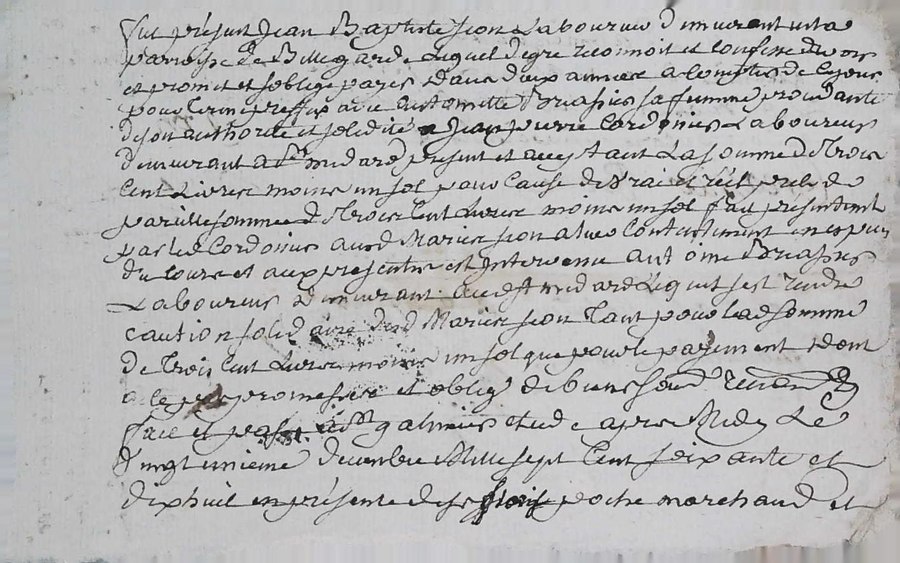 fut présent Jean Baptiste sion Laboureur demeurant en la
paroisse de Bellegarde Lequel de gré reconnoit et confesse devoir
et promet et soblige payer dans deux années a compter de ce jour
pour terme prefix avec Antoinette Brassier sa femme procedante
de son authorité et solidité a Jean pierre Cordonier Laboureur
demeurant a St medard présent et acceptant La somme de trois
Cent Livres moins un sol pour Cause de vrai et réel prêt de
pareille somme de trois Cent Livres moins un sol fait presentement
par led Cordonier aud Mariés sion a leur Contentement en espèces
du cours et aux presentes est intervenu antoine Brassier
Laboureur demeurant aud St medard Lequel sest rendu
caution solidaire desd Mariés sion tant pour lad somme
de trois Cent Livres moins un sol que pour le payement dont
acte promesses et oblig de biens soumᵒⁿ renonᵒⁿ
fait et passé a St galmier etude apres Midy Le
vingt unieme decembre Mille sept Cent soixante et
dix huit en présence de sr poche marchand et